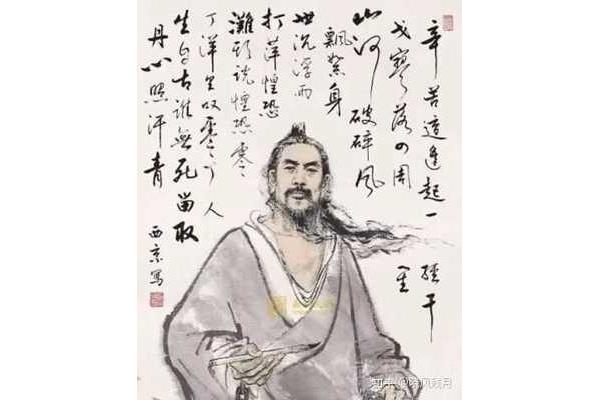 辛苦遭逢起一經干
戈寥落四周星
山河破碎風
飄絮身
世沉浮雨
打萍惶恐
灘頭說惶恐零
丁洋里叹零丁人
生自古誰無死留取
丹心照汗青
西京寫
知乎 @晓风残月